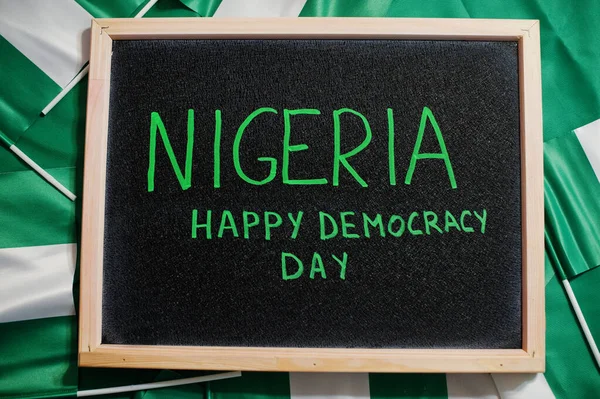 NIGERIA
HAPPY DEMOCRACY
DAY